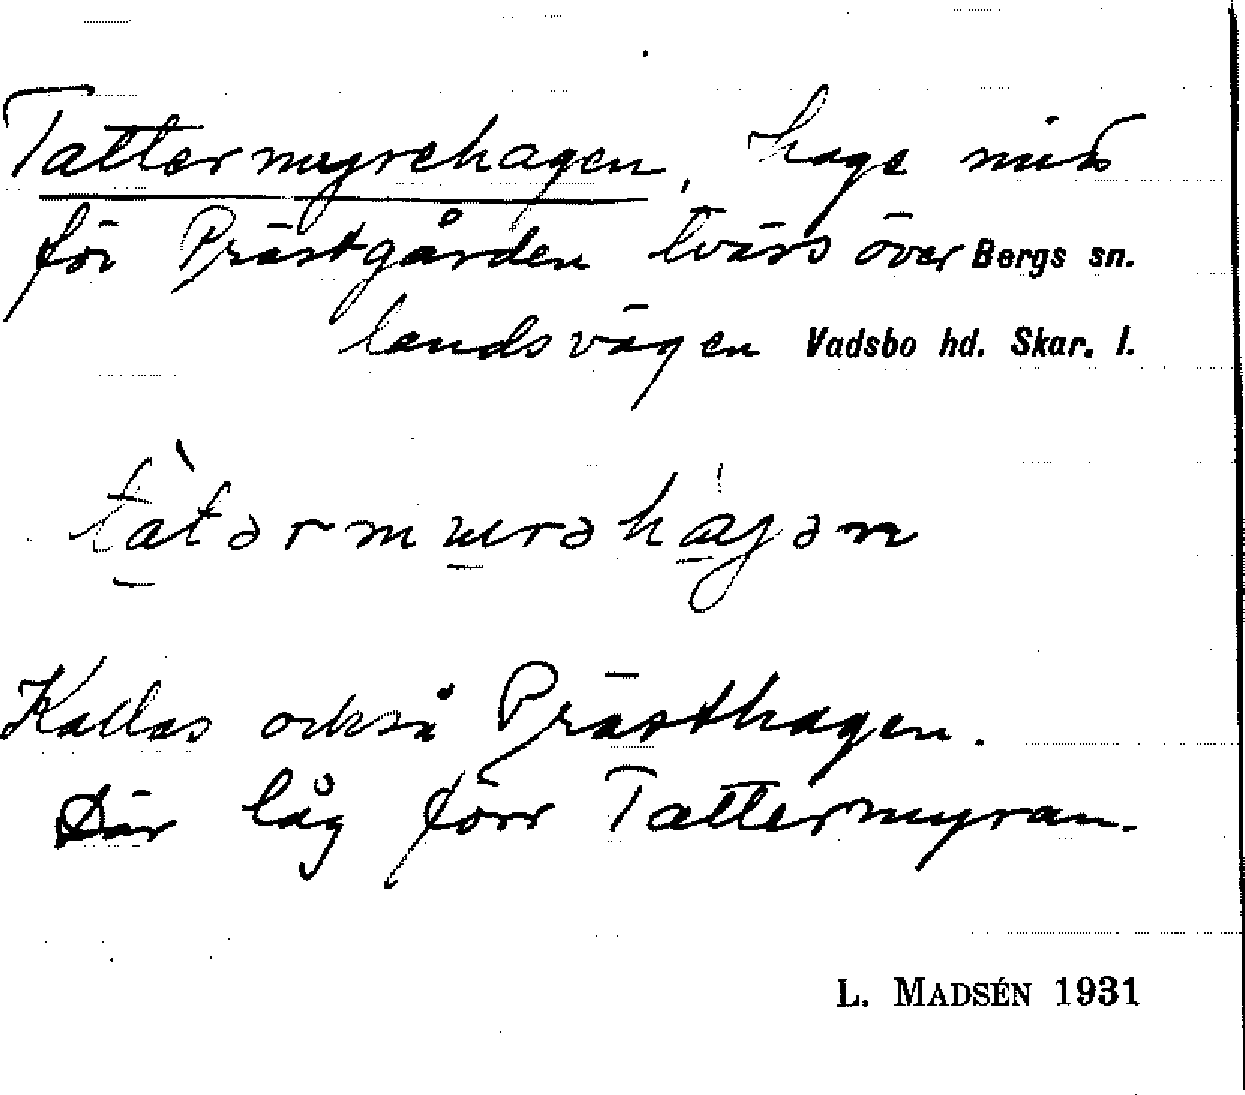 Tattermyrehagen, hage mitt
för Prästgården tvärs över Bergs sn.
landsvägen Vadsbo hd. Skar. l.
Kallas också Prästhagen.
Där låg förr Tattermyran.
L. MADSÉN 1931